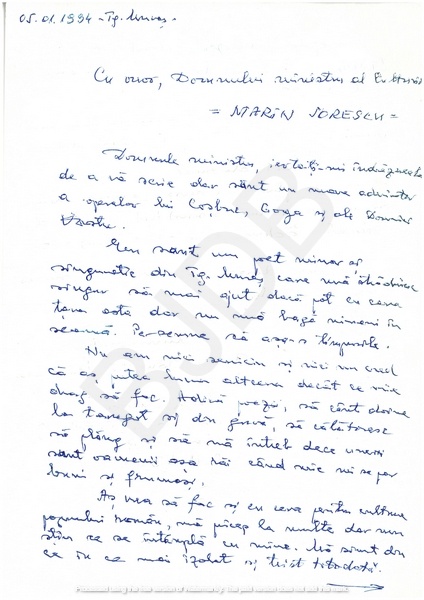 05.01.1994 - Tg. Mureș -
Cu onor, Domnului ministru al Culturii
= MARIN SORESCU =
Domnule ministru, iertați-mi îndrăzneala
de a vă scrie dar sânt un mare admirator
a operelor lui Coșbuc, Goga și ale Domniei
Voastre.
Eu sant un poet minor și
singuratic din Tg. Mureș care mă străduiesc
singur să mai ajut dacă pot cu ceva
țara asta dar nu mă bagă nimeni în
seamă. Persoane să așa-s timpurile.
Nu am nici serviciu și nici nu cred
că aș putea lucra altceva decât ce mie
drag să fac. Adică poezii, să cânt doine
la taragot și din gură, să călătoresc
să plâng și să mă întreb dece uneori
sant oamenii așa răi când mie mi se par
buni și frumoși.
Aș vrea să fac și eu ceva pentru cultura
poporului român, mă pricep la multe dar nu
știu ce se întâmplă cu mine. Mă simt din
ce în ce mai izolat și trist totodată.
BJDB